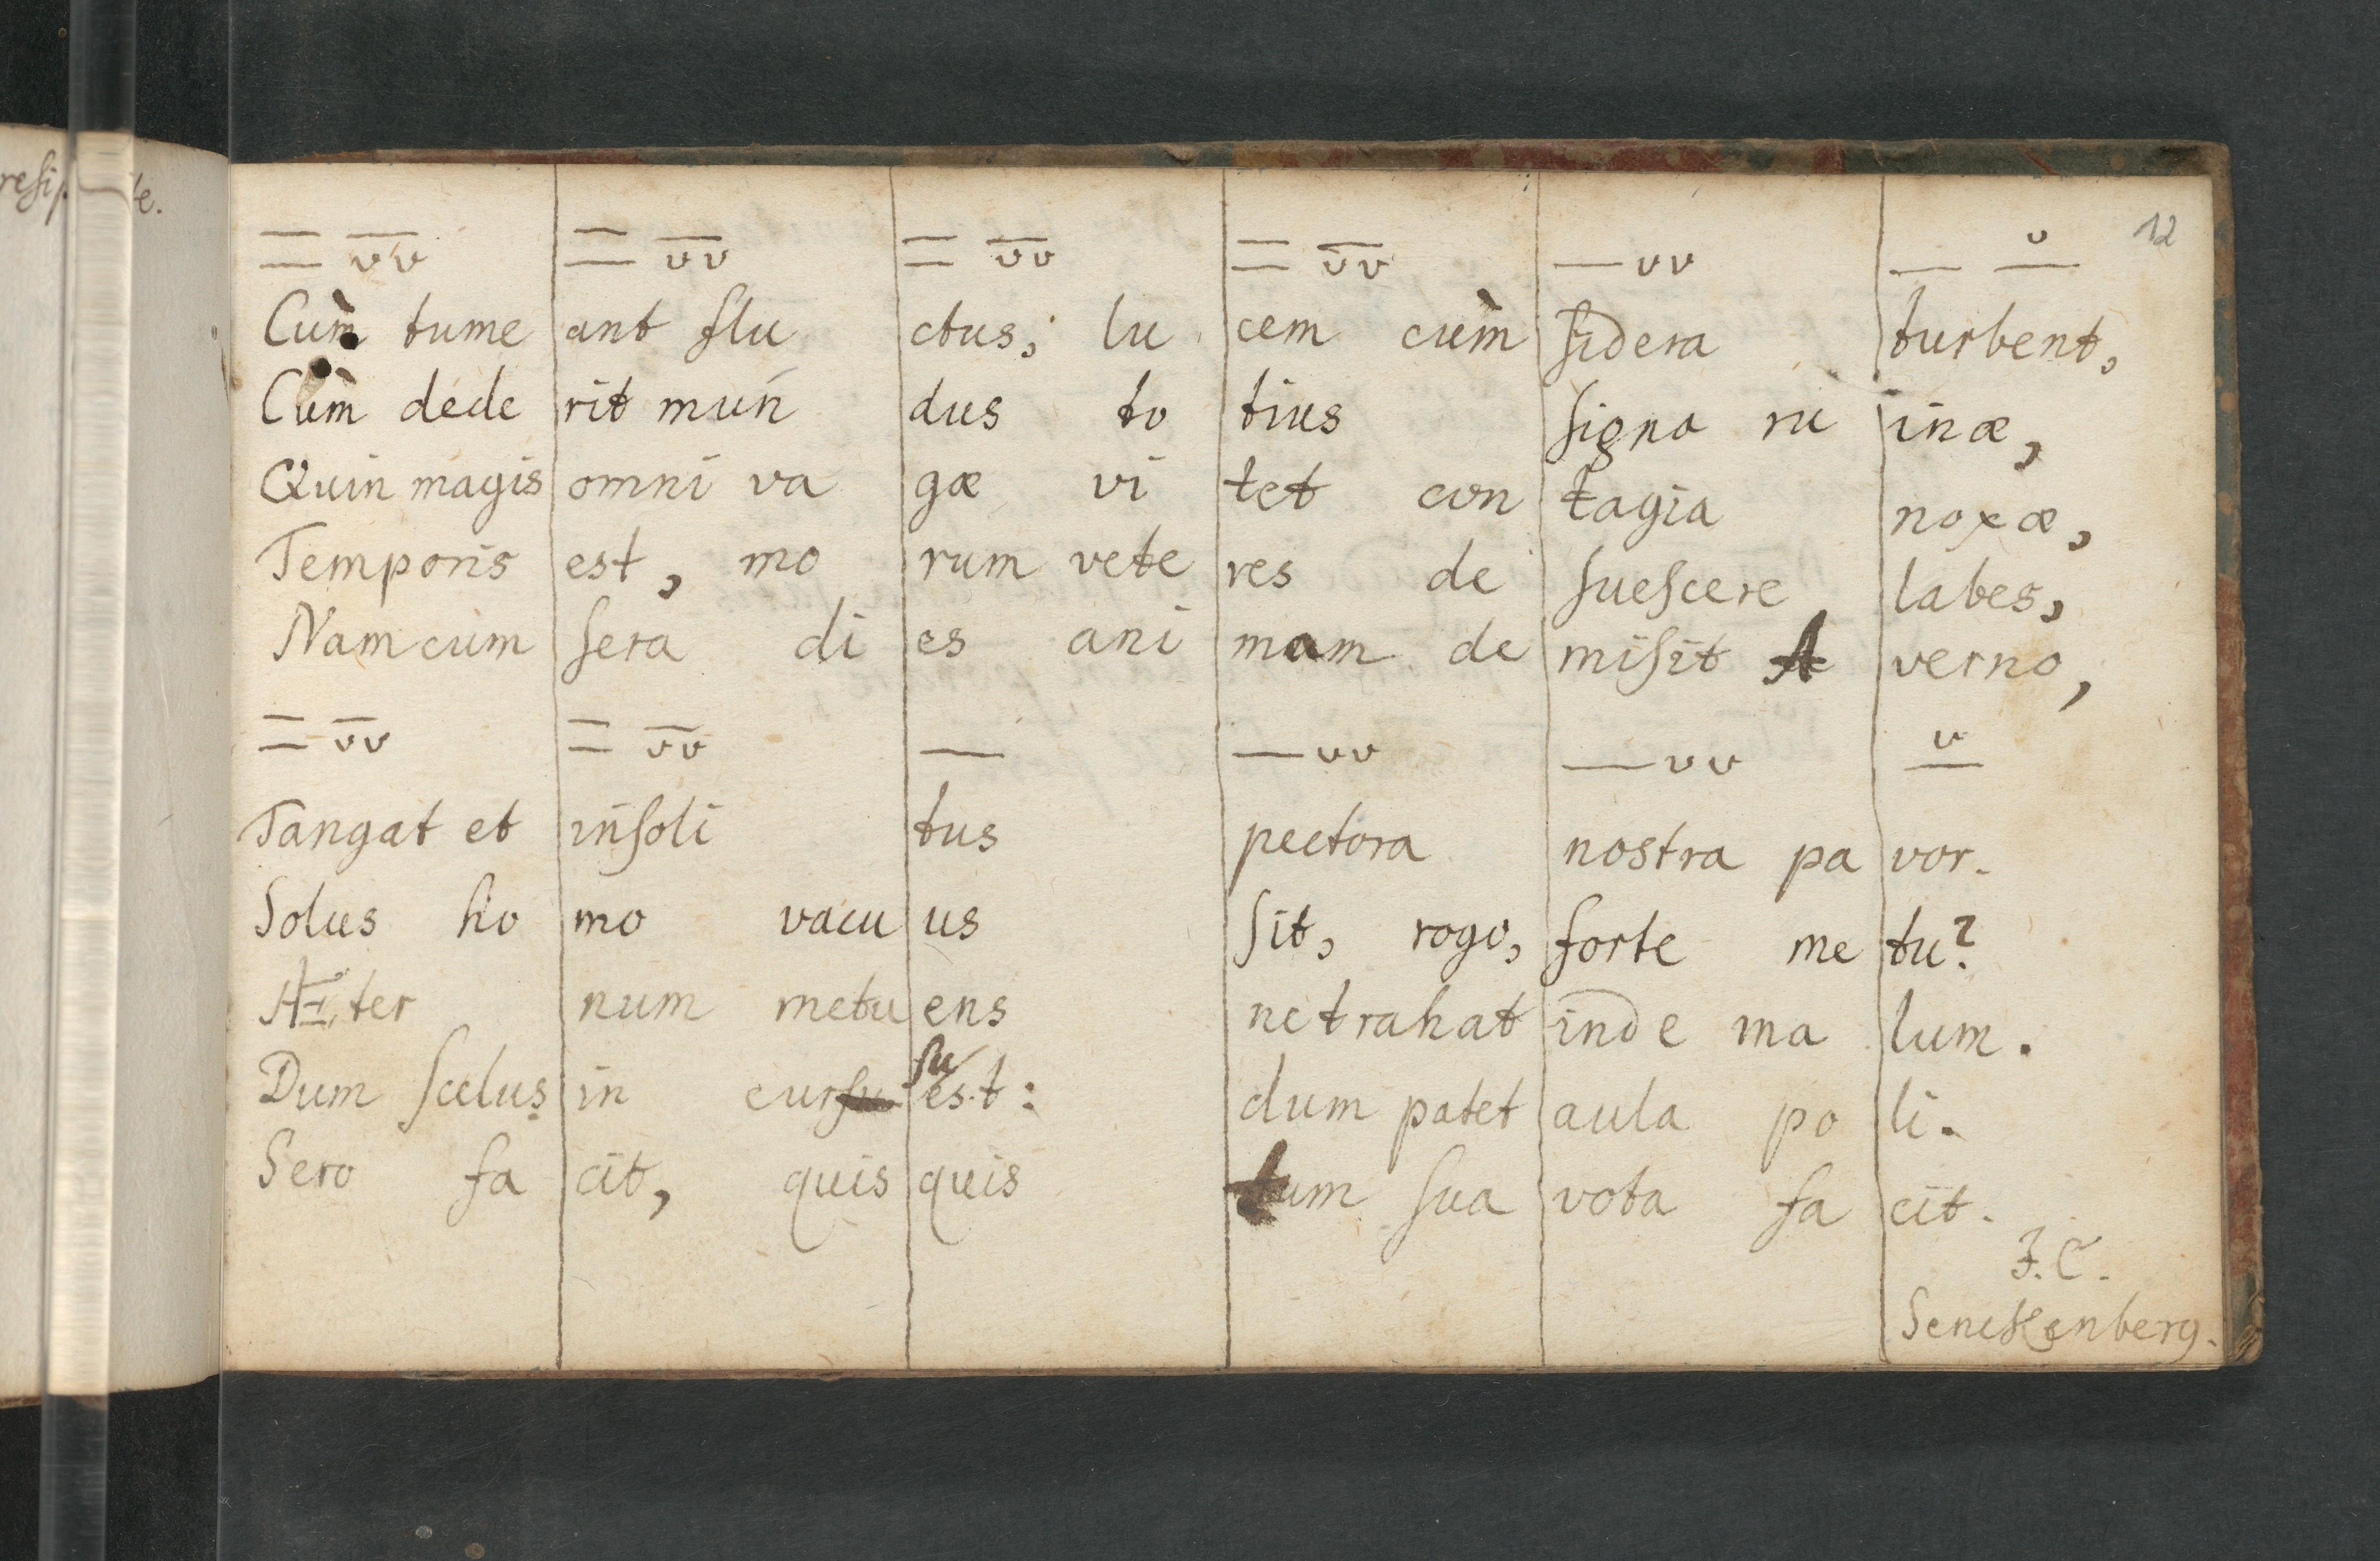 resip te.
12
— — ᴗᴗ — — ᴗᴗ — — ᴗᴗ — — ᴗᴗ — ᴗᴗ — ᴗ
Cùm tume ant flu ctus; lu cem cùm ſidera turbent,
Cùm dede rit mun dus to tius ſigna ru inæ,
Quin magis omni va gæ vi tet con tagia noxæ,
Temporis est, mo rum vete res de ſueſcere labes,
Nam cum ſera di es ani mam de miſit A verno,
— — ᴗᴗ — — ᴗᴗ — — ᴗᴗ — ᴗᴗ ᴗ
Tangat et inſoli tus pectora nostra pa vor.
Solus ho mo vacu us ſit, rogo, forte me tu?
Æ ter num metu ens ne trahat inde ma lum.
Dum ſcelus in curſu ſu est: dum patet aula po li.
Sero fa cit, quis quis tum ſua vota fa cit.
J. C.
Senckenberg.